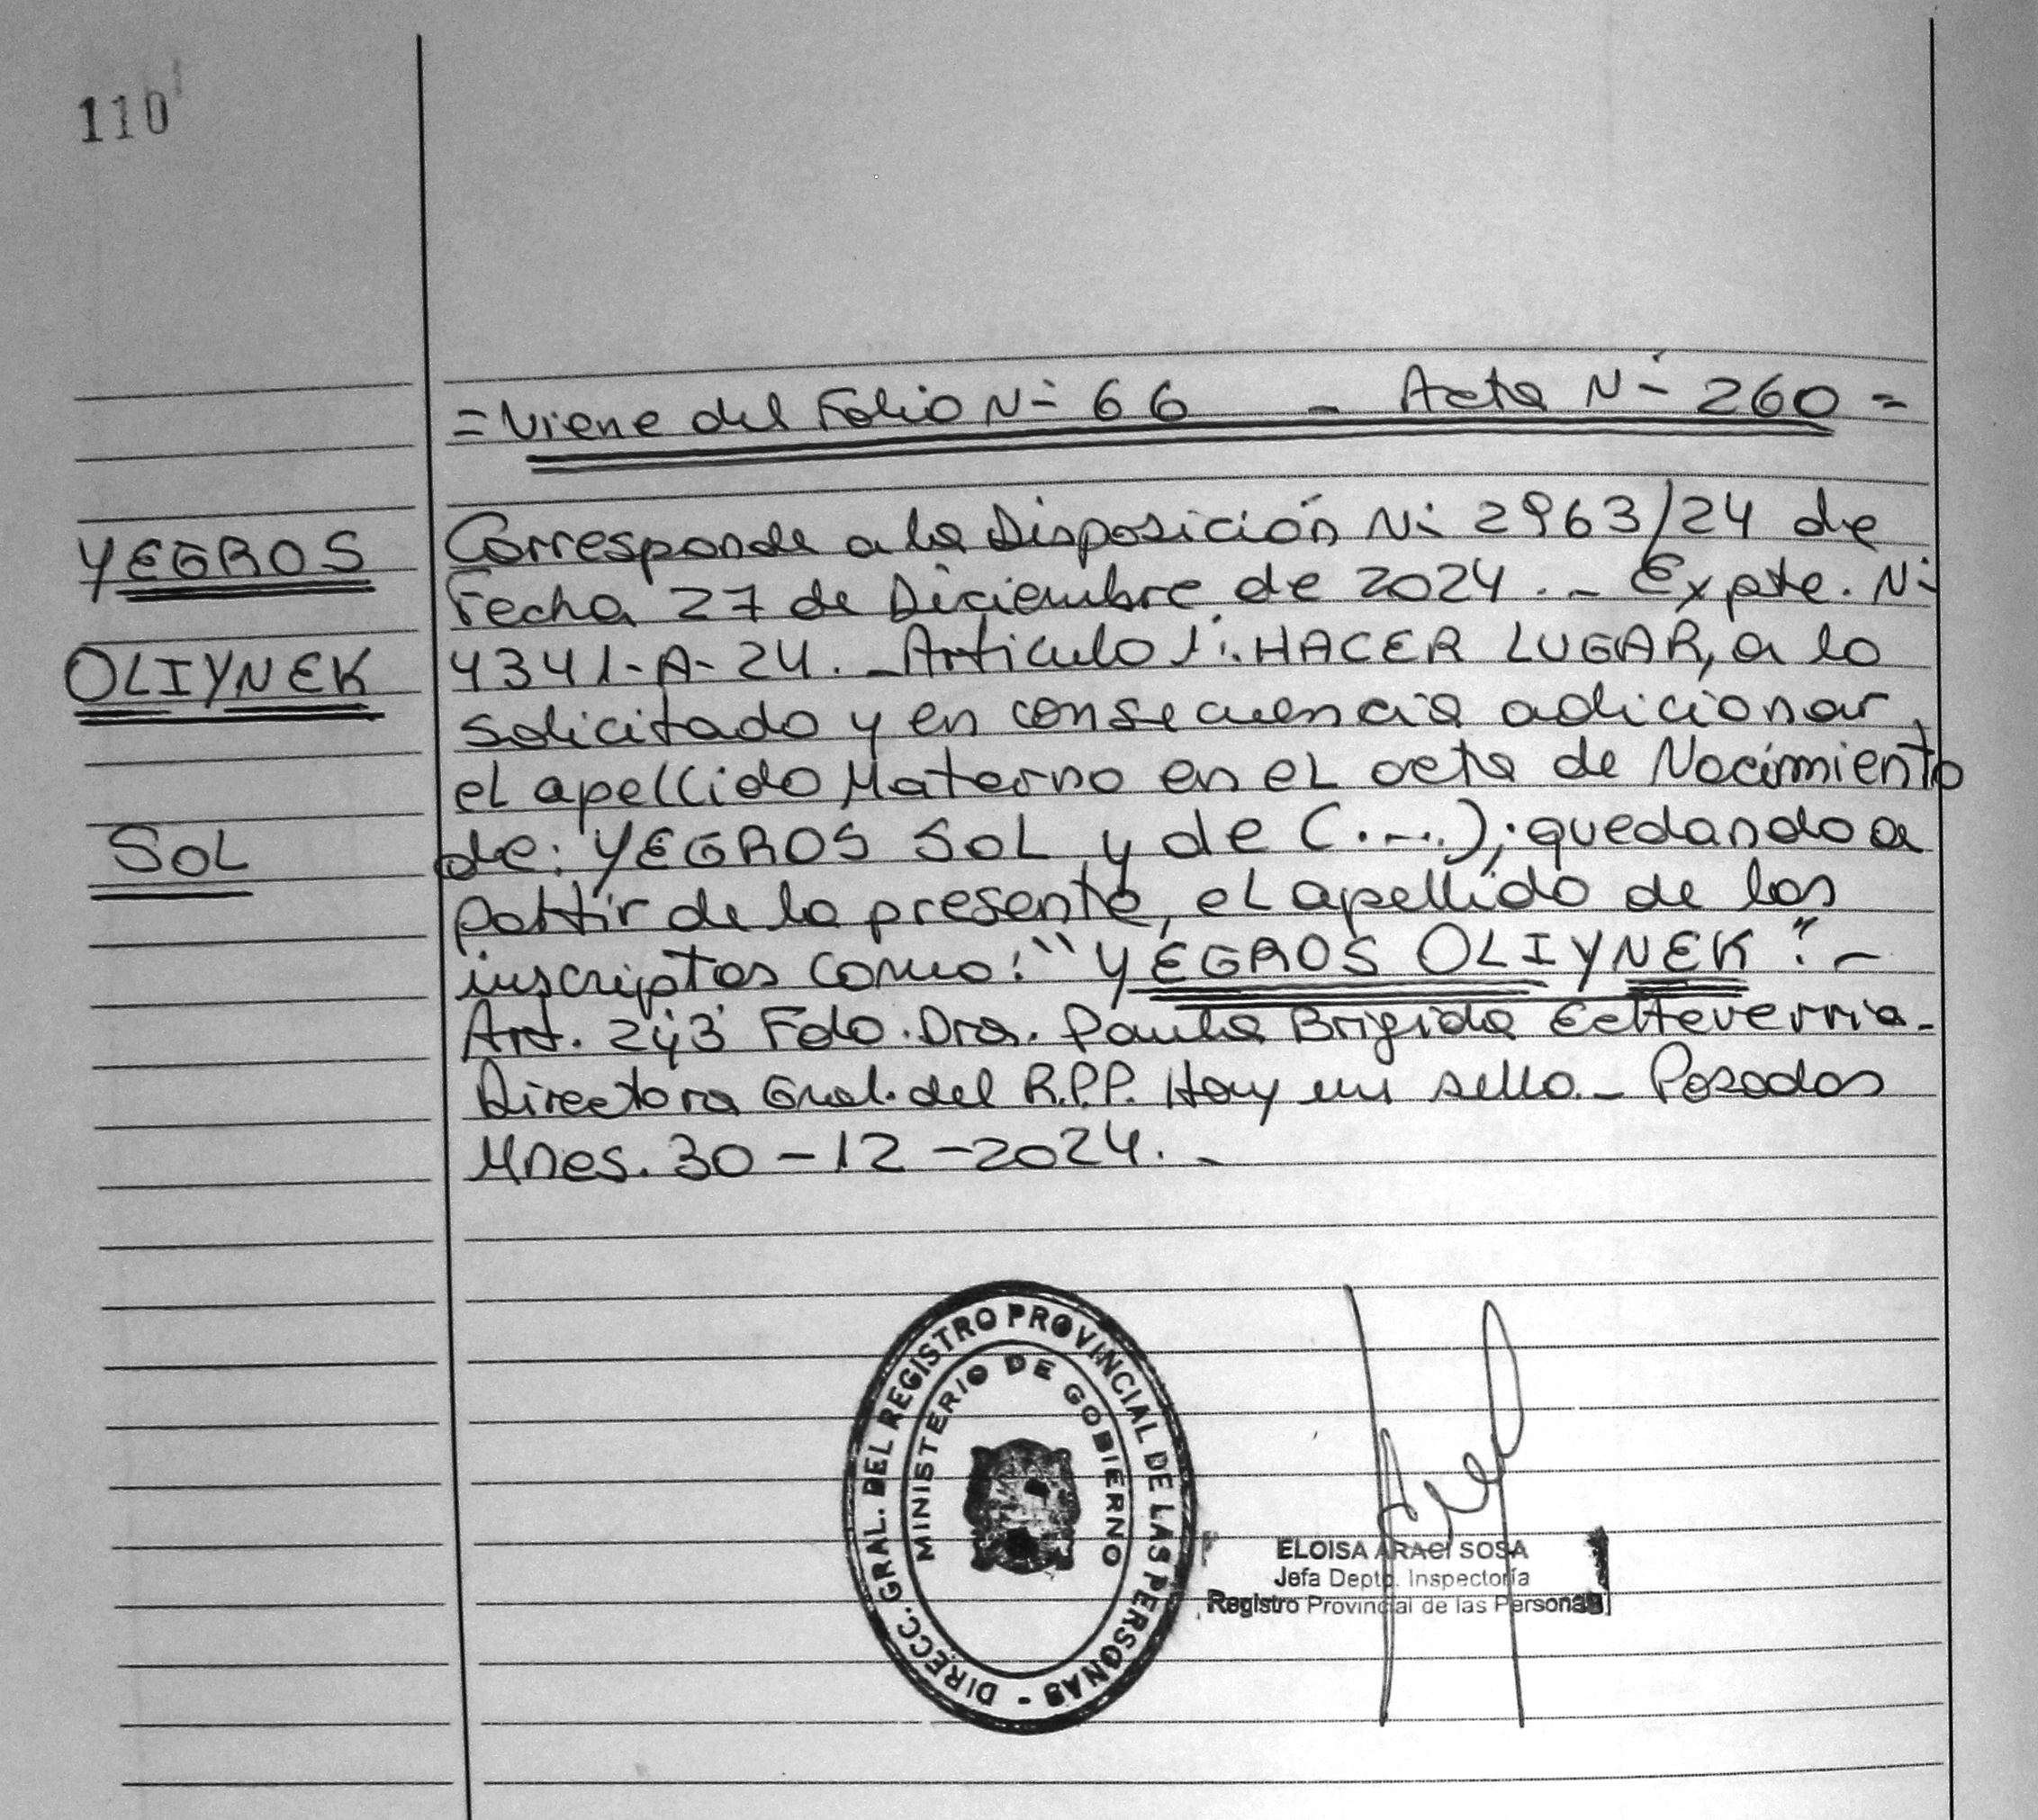 110
= Viene del Folio Nº 66 - Acta Nº 260 =
YEGROS
OLIYNEK
SOL
Corresponde a la Disposición Nº 2963/24 de
Fecha 27 de Diciembre de 2024. - Expte. Nº
4341-A-24. - Artículo 1º: HACER LUGAR, a lo
solicitado y en consecuencia adicionar
el apellido Materno en el acta de Nacimiento
de: YEGROS SOL y de (....); quedando a
partir de la presente, el apellido de los
inscriptos como: "YEGROS OLIYNEK". -
Art. 2 y 3 Fdo. Dra. Paula Brigida Echeverria.
Directora Gral. del R.P.P. Hay un sello. - Posadas
Mnes. 30-12-2024. -
DIRECC. GRAL. DEL REGISTRO PROVINCIAL DE LAS PERSONAS -
MINISTERIO DE GOBIERNO
ELOISA ARACI SOSA
Jefa Depto. Inspectoría
Registro Provincial de las Personas